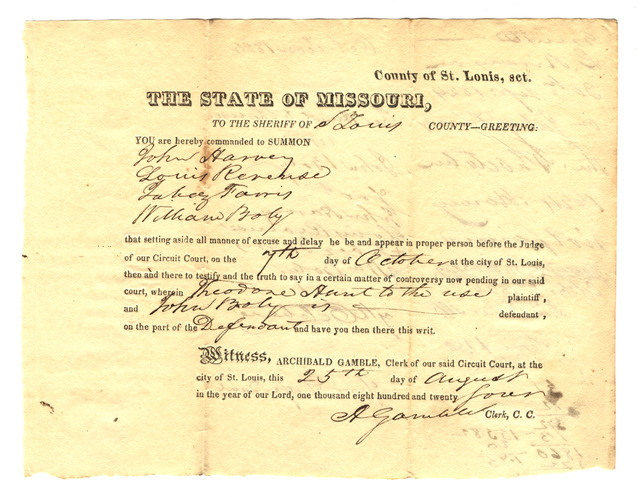 County of St. Louis, sct.
THE STATE OF MISSOURI,
TO THE SHERIFF OF St Louis COUNTY—GREETING:
YOU are hereby commanded to SUMMON
John Harvey
Louis Reveuse
Jabez Farris
William Boly
that setting aside all manner of excuse and delay he be and appear in proper person before the Judge
of our Circuit Court, on the 7th day of October at the city of St. Louis,
then and there to testify and the truth to say in a certain matter of controversy now pending in our said
court, wherein Theodore Hunt to the use plaintiff,
and John Boly is defendant,
on the part of the Defendant and have you then there this writ.
Witness, ARCHIBALD GAMBLE, Clerk of our said Circuit Court, at the
city of St. Louis, this 25th day of August
in the year of our Lord, one thousand eight hundred and twenty four
A Gamble Clerk, C. C.